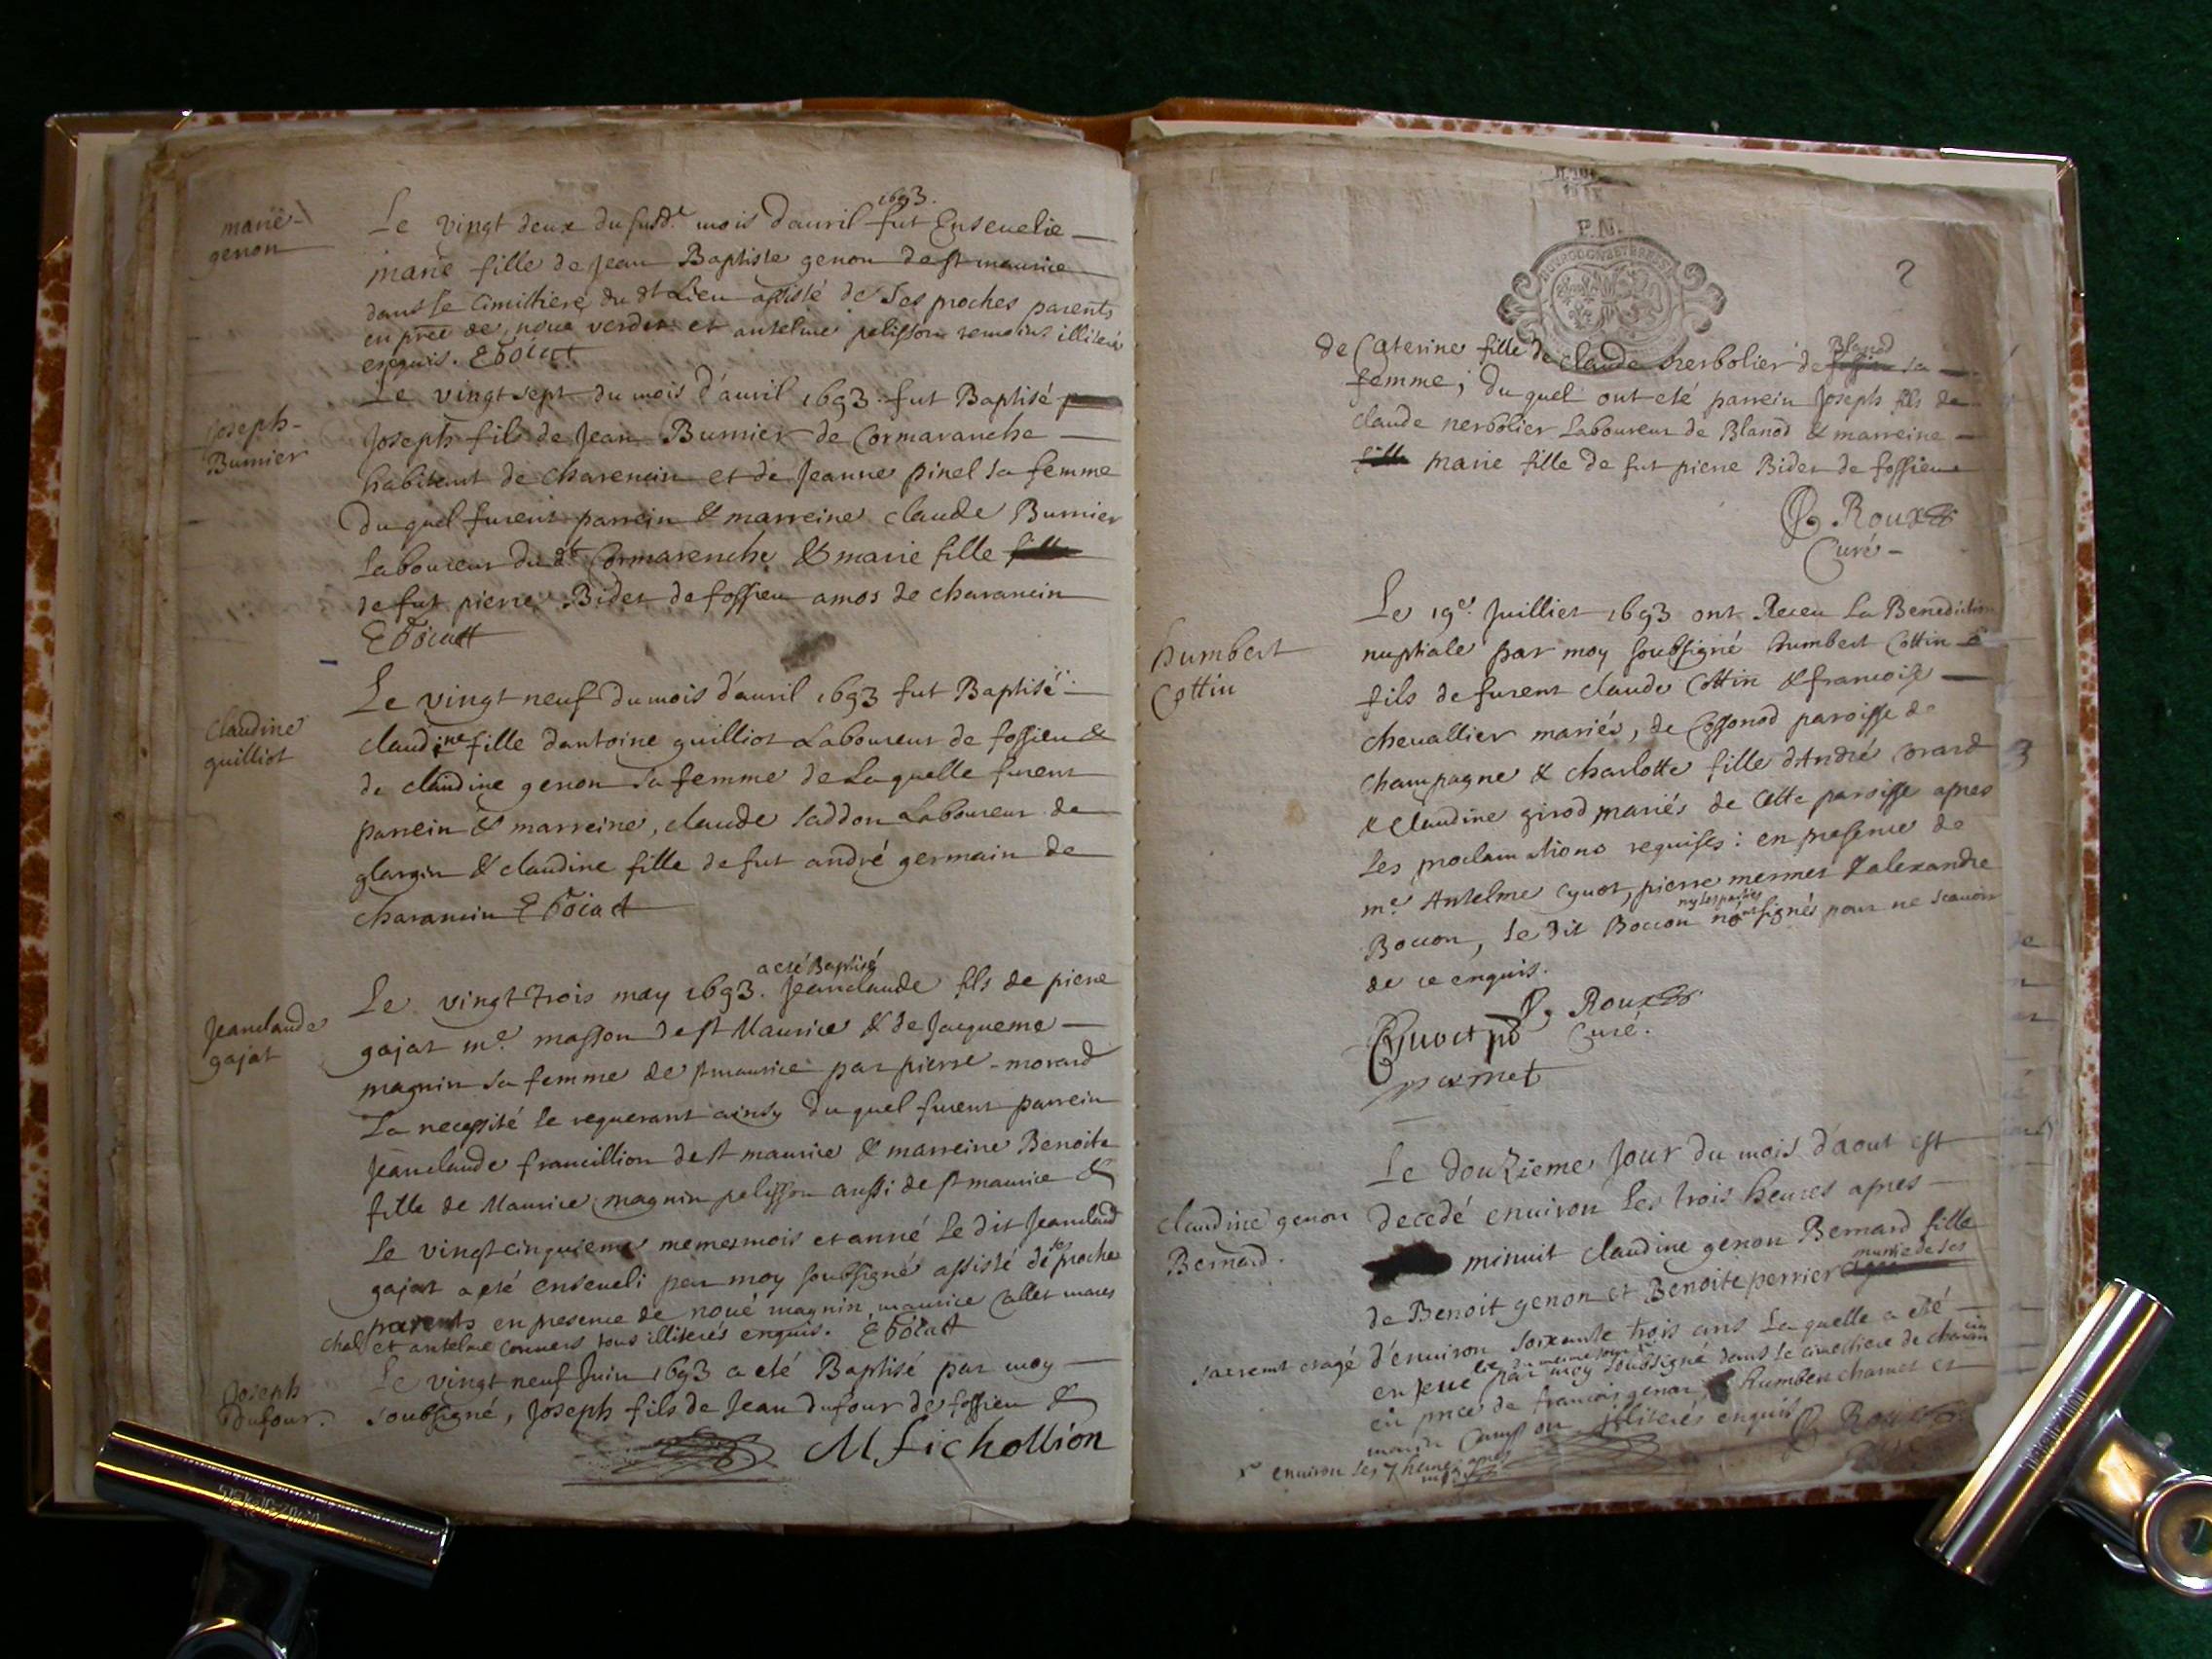 marie
genon
1693.
Le vingt deux du susd.t mois dauril fut Enseuelie
marie fille de Jean Baptiste genon de st maurice
dans le Cimittiere du dt Lieu assisté de Ses proches parents
en pnce de noué verdet et antelme pelisson temoins illiterés
enquis. Ebocatt
Joseph
Burnier
Le vingt sept du mois d'auril 1693 fut Baptisé
Joseph fils de Jean Burnier de Cormaranche
habitant de Charencin et de Jeanne pinel sa femme
Du quel furent parrein & marreine claude Burnier
Laboureur du dt Cormarenche & marie fille
de fut pierre Bidet de fossieu amos de charancin
Ebocatt
Claudine
guilliot
Le vingt neuf du mois d'auril 1693 fut Baptisé
claudine fille dantoine guilliot Laboureur de fossieu &
de claudine genon sa femme de Laquelle furent
parrein & marreine, claude laddon Laboureur de
glargin & claudine fille de fut andré germain de
charancin Ebocatt
Jeanclaude
gajat
a eté Baptisé
Le vingt Trois may 1693. Jeanclaude fils de piere
gajat me. masson de st Maurice & de Jacqueme
magnin sa femme de st maurice par pierre morard
La necessité le requerant ainsy Du quel furent parrein
Jeanclaude francillion de st maurice & marreine Benoite
fille de Maurice magnin pelisson aussi de st maurice &
Le vingt cinquieme memesmois et anné Le dit Jeanclaud
gajat a eté enseueli par moy soubsigné assisté de ses proche
parents en presence de noué magnin, maurice Callet mares
chal et antelme conuers tous illiterés enquis. Ebocatt
Joseph
Dufour.
Le vingt neuf Juin 1693 a eté Baptisé par moy
soubsigné, Joseph fils de Jean dufour de fossieu &
M fichollion
P.N.
2
Blanod
de Caterine fille de claude herbolier de sa
femme; du quel ont eté parrein Joseph fils de
claude herbolier Laboureur de Blanod & marreine
marie fille de fut pierre Bidet de fossieu
Roux
Curé
humbert
Cottin
Le 19e. Juilliet 1693 ont Receu La Benediction
nuptiale par moy soubsigné humbert Cottin
fils de furent claude Cottin & francoise
cheuallier mariés, de Cossonod paroisse de
Champagne & charlotte fille dAndré Morard
& Claudine girod mariés de Cette paroisse apres
les proclamations requises: en presence de
me. Antelme Cyuot, pierre mermet & alexandre
ny les parties
Boccon, le dit Boccon non signés pour ne scauoir
de ce enquis.
Roux
Cyuoct
Curé.
p mermet
Claudine genon
Bernard.
Le Douzieme Jour du mois d'aout est
decedé enuiron Les trois heures apres
minuit Claudine genon Bernard fille
munie de ses
de Benoit genon et Benoite perrier
sacremt et agé d'enuiron soixante trois ans La quelle a eté
enseuelie du meme jour par moy soussigné dans le cimettiere de charancin
en pnce de francois genon, humbert charuet et
illiterés enquis
enuiron les 7 heures apres
midy